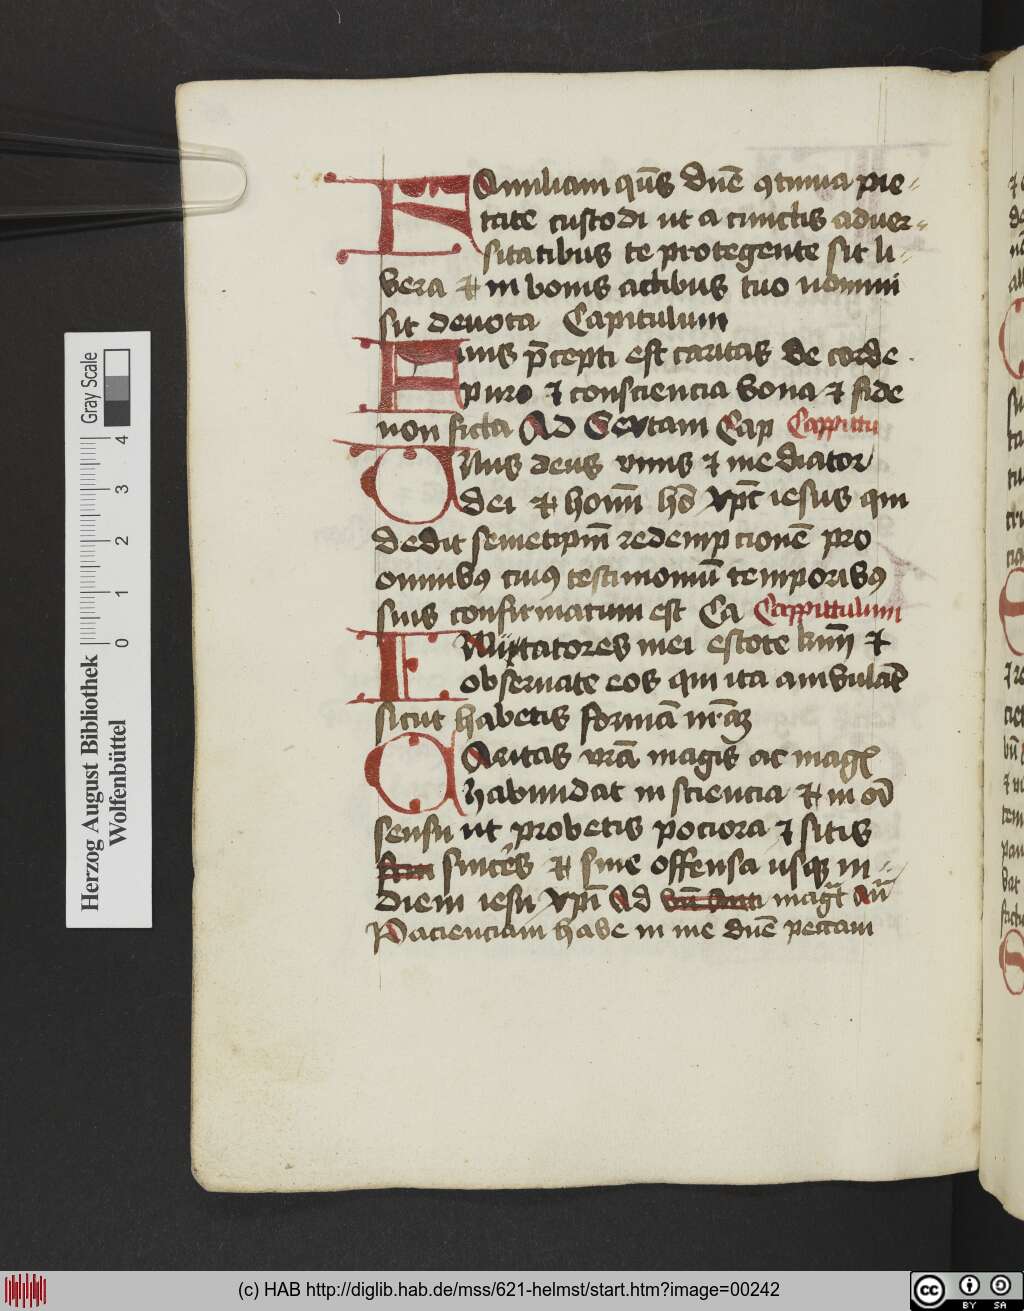 FAmiliam qūs dn̄e ꝯtinua pie⸗
tate custodi ut a cunctis aduer⸗
sitatibus te protegente sit li⸗
bera et in bonis actibus tuo nomini
sit deuota Capitulum
Finis p̄cepti est caritas de corde
puro et consciencia bona et fide
non ficta Ad Sextam Cap Cappittu
UNus deus vnus et mediator
dei et homī hō xp̄c iesus qui
dedit semetipm̄ redempcionē pro
omnibꝯ cuiꝯ testimoniū temporibꝯ
suis confirmatum est Ca Cappittulum
IMitatores mei estote et
obseruate eos qui ita ambulāt
sicut habetis formā nr̄am
CAritas vrā magis ac magꝭ
habundat in sciencia et in oī
sensu ut probetis pociora et sitis
sincēs et sine offensa usqꝫ in⸗
diem iesu xpī Ad magt̄ Aū
Pacienciam habe in me dn̄e peccaui
Herzog August Bibliothek
Wolfenbüttel
0 1 2 3 4
Gray Scale
(c) HAB http://diglib.hab.de/mss/621-helmst/start.htm?image=00242
cc BY SA